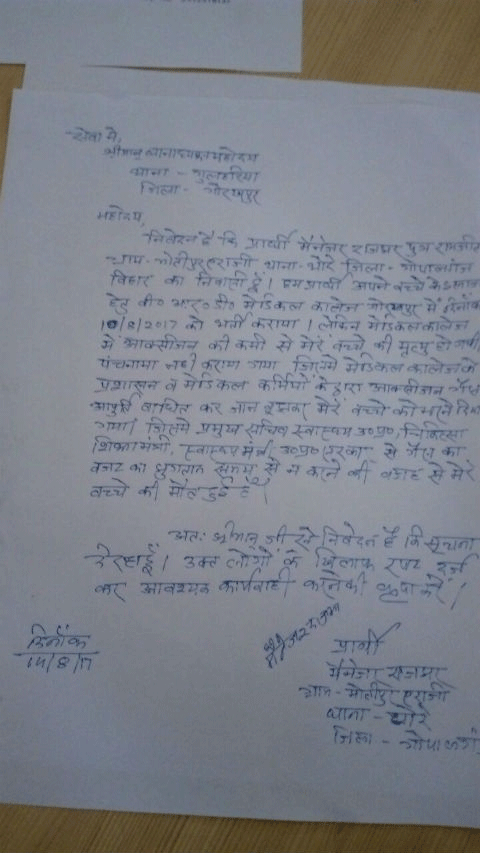 सेवा मे,
श्रीमान् थानाध्यक्ष महोदय
थाना - गुलहरिया
जिला - गोरखपुर
महोदय,
निवेदन है कि प्रार्थी मैनेजर राजभर पुत्र रामजीत
ग्राम - थाना - भोरे जिला - गोपालगंज
बिहार का निवासी हूँ। प्रार्थी अपने बच्चे के इलाज
हेतु बी० आर० डी० मेडिकल कालेज गोरखपुर में दिनाँक
10/8/2017 को भर्ती कराया। लेकिन मेडिकल कालेज
में आक्सीजन की कमी से मेरे बच्चे की मृत्यु हो गयी
पंचनामा नही कराया गया जिसमे मेडिकल कालेज के
प्रशासन व मेडिकल कर्मियों के द्वारा आक्सीजन गैस
आपूर्ति बाधित कर जान बूझकर मेरे बच्चे को मार दिया
गया। जिसमे प्रमुख सचिव स्वास्थ्य उ०प्र०, चिकित्सा
शिक्षा मंत्री, स्वास्थ्य मंत्री उ०प्र० सरकार से गैस का
बजट का भुगतान समय से न करने की वजह से मेरे
बच्चे की मौत हुई है।
अतः श्रीमान् जी से निवेदन है कि सूचना
दे रहा हूँ। उक्त लोगों के खिलाफ रपट दर्ज
कर आवश्यक कार्यवाही करने की कृपा करें।
दिनाँक
14/8/17
प्रार्थी
मैनेजर राजभर
ग्राम -
थाना - भोरे
जिला - गोपालगं